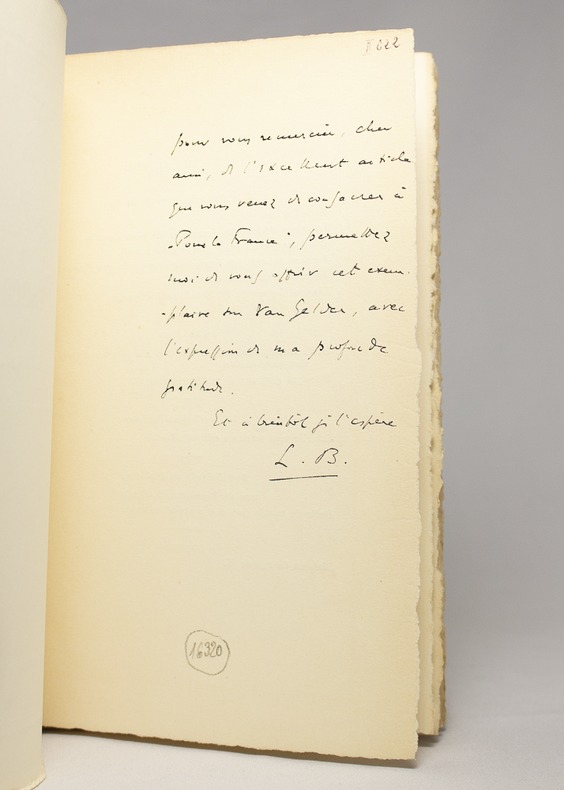 822
pour vous remercier, cher
ami, de l'excellent article
que vous venez de consacrer à
"Pour la France", permettez
moi de vous offrir cet exem-
-plaire sur Van Gelder, avec
l'expression de ma profonde
gratitude.
Et à bientôt j'l'espère
L. B.
16320